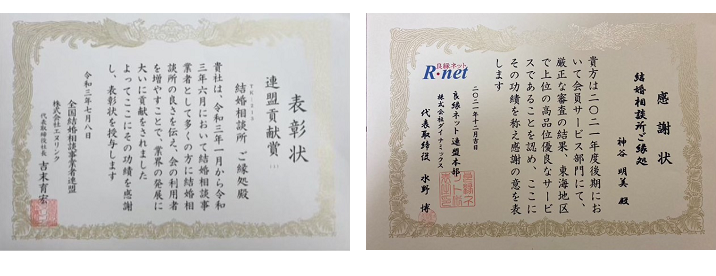 表彰状
連盟貢献賞
結婚相談所 ご縁処殿
貴社は、令和三年一月から令和
三年六月において結婚相談事
業者として多くの方に結婚相
談所の良さを伝え、会の利用者
を増やすことで、業界の発展に
大いに貢献をされました
よってここにその功績を感謝
し、表彰状を授与します
令和三年七月八日
全国結婚相談事業者連盟
株式会社エヌリンク
代表取締役社長 吉末育宏
良縁ネット
R・net
感謝状
結婚相談所ご縁処
神谷 明美 殿
貴方は二〇二一年度後期にお
いて会員サービス部門にて、
厳正な審査の結果、東海地区
で上位の高品位優良なサービ
スであることを認め、ここに
その功績を称え感謝の意を表
します
二〇二一年十二月吉日
良縁ネット連盟本部
株式会社ダイナミックス
代表取締役 水野 博